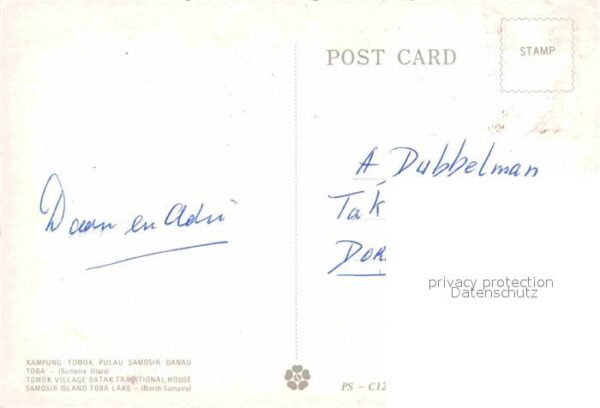 POST CARD
STAMP
Daan en Adri
A Dubbelman
Tak
Dor
privacy protection
Datenschutz
KAMPUNG TOMOK PULAU SAMOSIR DANAU
TOBA – (Sumatra Utara)
TOMOK VILLAGE BATAK TRADITIONAL HOUSE
SAMOSIR ISLAND TOBA LAKE – (North Sumatra)
PS – C12